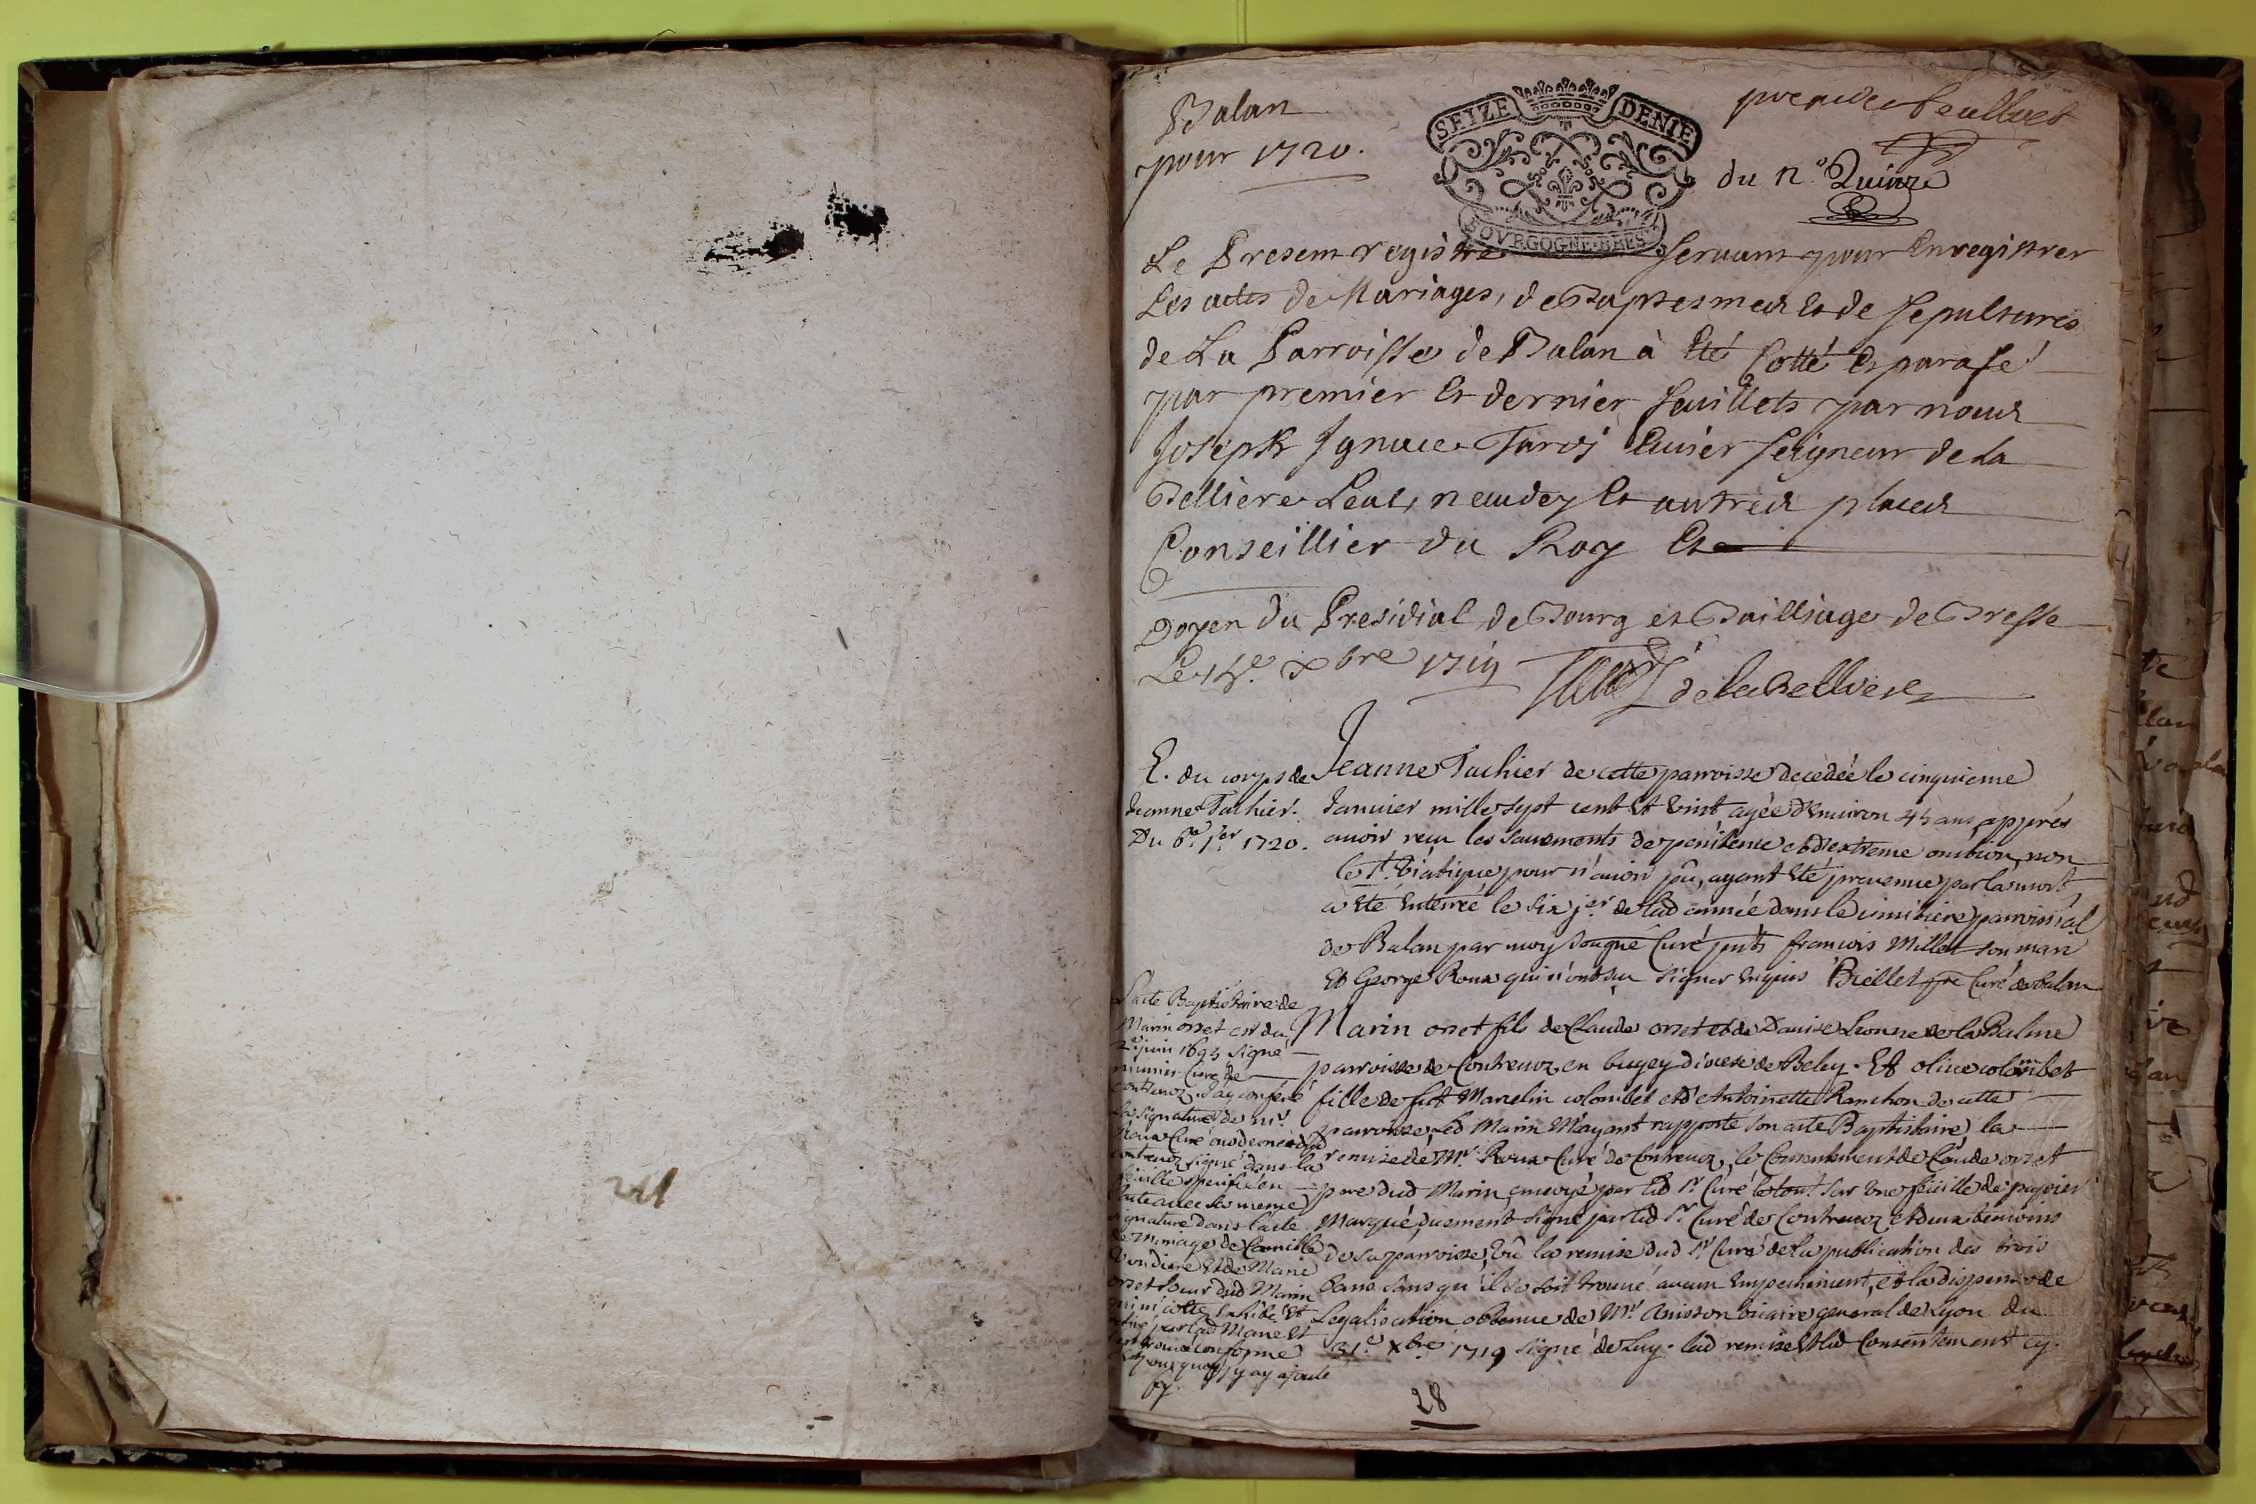 Balan
pour 1720.
SEIZE DENIE
BOVRGOGNE BRES
premier feuillet
du n.º Quinze
Le Present registre servant pour Enregistrer
Les actes de Mariages, de Baptesmes et de sepultures
de La Parroisse de Balan à Eté Cotté et parafé
par premier et dernier feuillets par nous
Joseph Ignace escuier seigneur de la
Belliere Leal, neudey et autres places
Conseillier du Roy et
Doyen du Presidial de Bourg et Bailliage de Bresse
Le xbre 1719
de la Belliere
E. du corps de
Jeanne Tachier.
Du 6e. jer 1720.
Jeanne Tachier de cette parroisse decedée le cinquieme
Janvier mille sept cent et vint agée d'environ 45 ans, apprés
avoir reçu les sacrements de penitence et d'extreme onction, non
le St. Viatique pour n'avoir pû, ayant eté prevenue par la mort
a eté enterrée le six jer. de lad année dans le cimitiere parroissial
de Balan par moy sougné Curé pnts françois Millet son mari
et George Roux qui n'ont sçu signer enquis Brellet ptre Curé de balan
L'acte Baptistaire de
Marin orset est du
2e juin 1693 signé
munier Curé de
contrevoz j'ay conferé
la signature de mr.
Roux Curé moderne dud
contrevoz signé dans la
feüille specifiée en
l'acte avec la meme
signature dans l'acte
de mariage de Camille
et de Marie
orset soeur dud Marin
par lad Marie et
trouvé conforme
pourquoy j'y ay ajouté
foy.
Marin orset fils de Claude orset et de Danise Leonne de la Balme
parroisse de Contrevoz en bugey diocese de Beley. Et olive colombet
fille de fut Marcelin colombet et d'Antoinette Ranchon de cette
parroisse, Led Marin M'ayant rapporté son acte Baptistaire, la
remise de Mr. Roux Curé de Contrevoz, le Consentement de Claude orset
pere dud Marin, envoyé par led Sr. Curé le tout sur une feüille de papier
Marqué, duement signé par led Sr. Curé de Contrevoz et deux temoins
de sa parroisse, Vû la remise dud Sr. Curé de la publication des trois
bans sans qu'il se soit trouvé aucun empechement, et la dispense de
Legalisation obtenue de Mr. Anisson vicaire general de Lyon du
31e. xbre 1719 signé de Luy. lad remise et led Consentement cy.
28